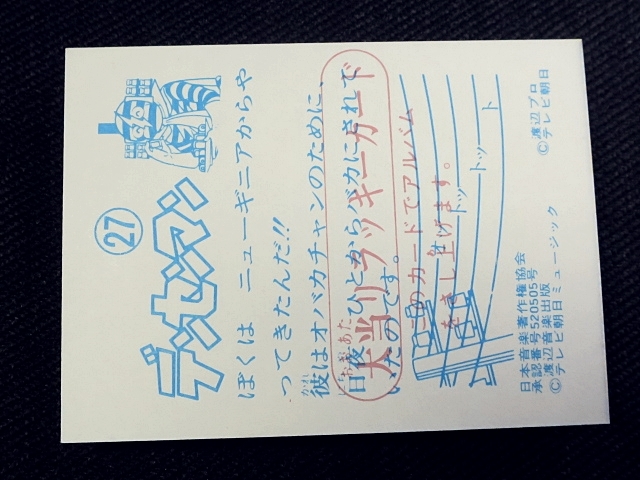 27
デンセンマン
ぼくは ニューギニアからや
ってきたんだ!!
彼はオバカチャンのために、
かれ
日夜ひとからバカにされて
にちや
いたのです。
大当り
おおあたり
ラッキーカード
このカードでアルバム
をさし上げます。
トットット
日本音楽著作権協会
承認番号520505号
©渡辺音楽出版
テレビ朝日ミュージック
©渡辺プロ
テレビ朝日